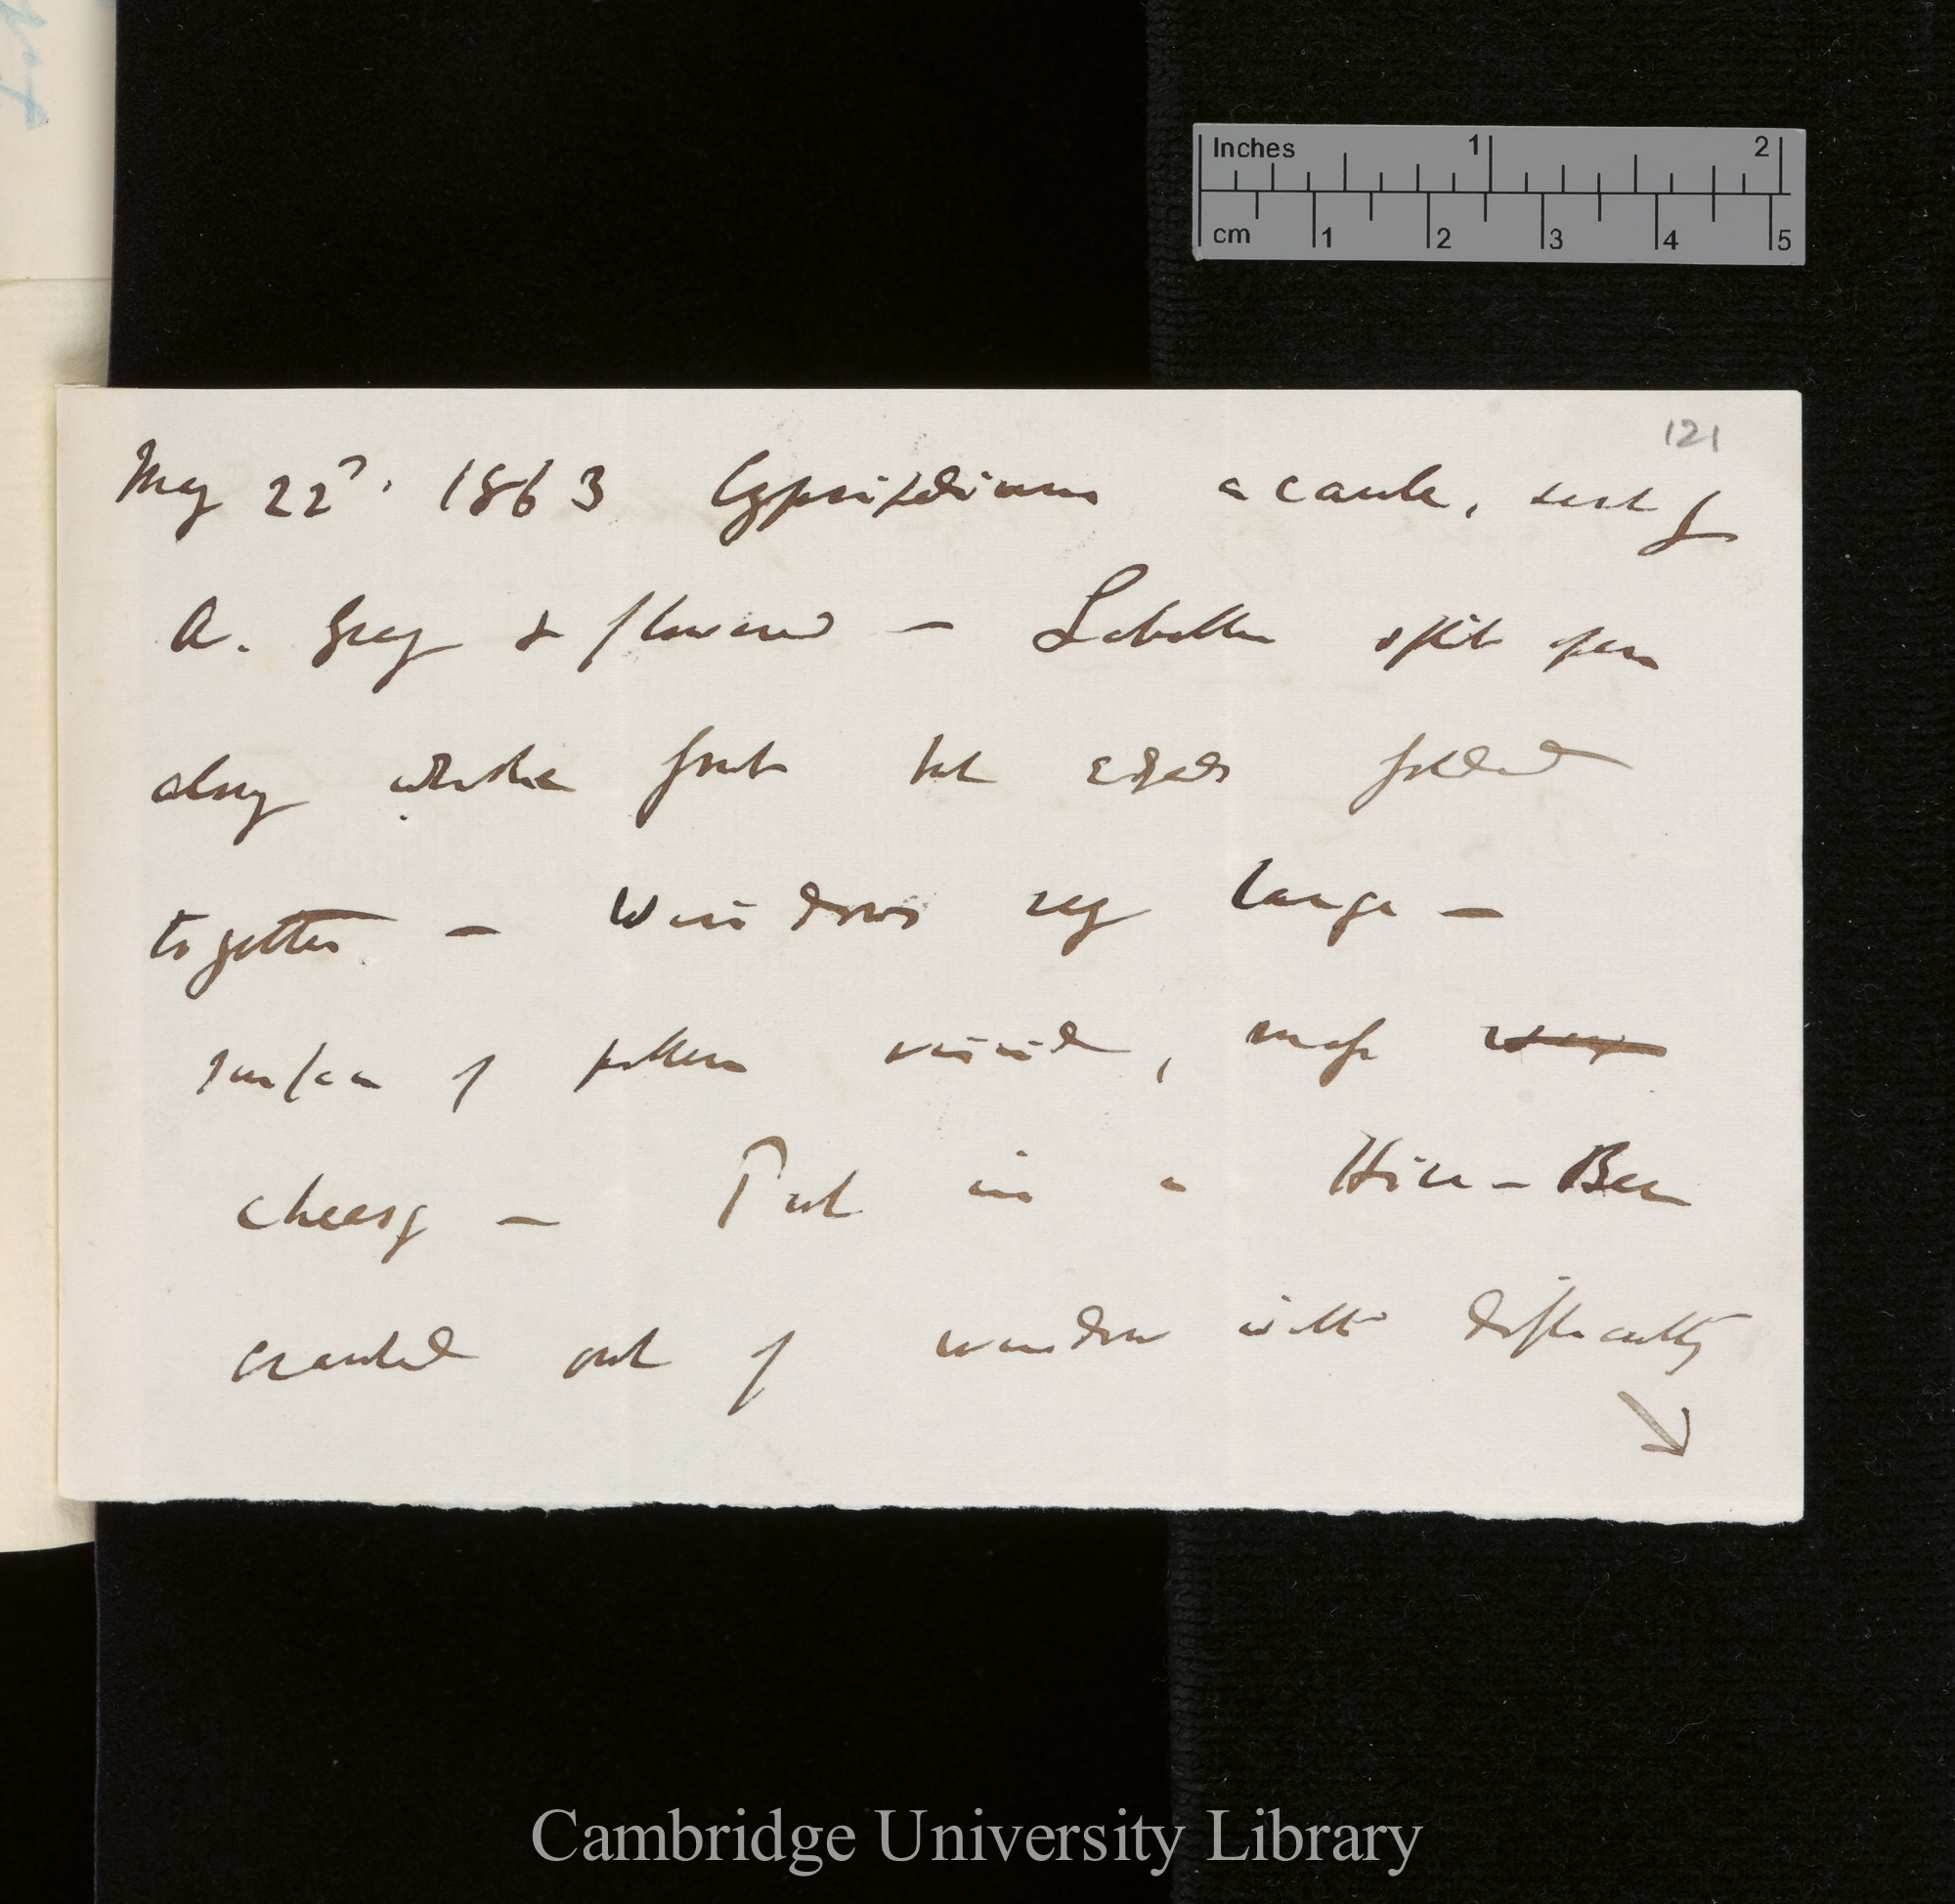 Inches 1 2
cm 1 2 3 4 5
121
May 22d. 1863 Cypripedium acaule, sent by
A. Gray & flowered — Labellum split open
along whole front but edges folded
together — Windows very large —
surface of pollen viscid, mass very
cheesy — Put in a Hive-Bee
crawled out of window with difficulty
Cambridge University Library